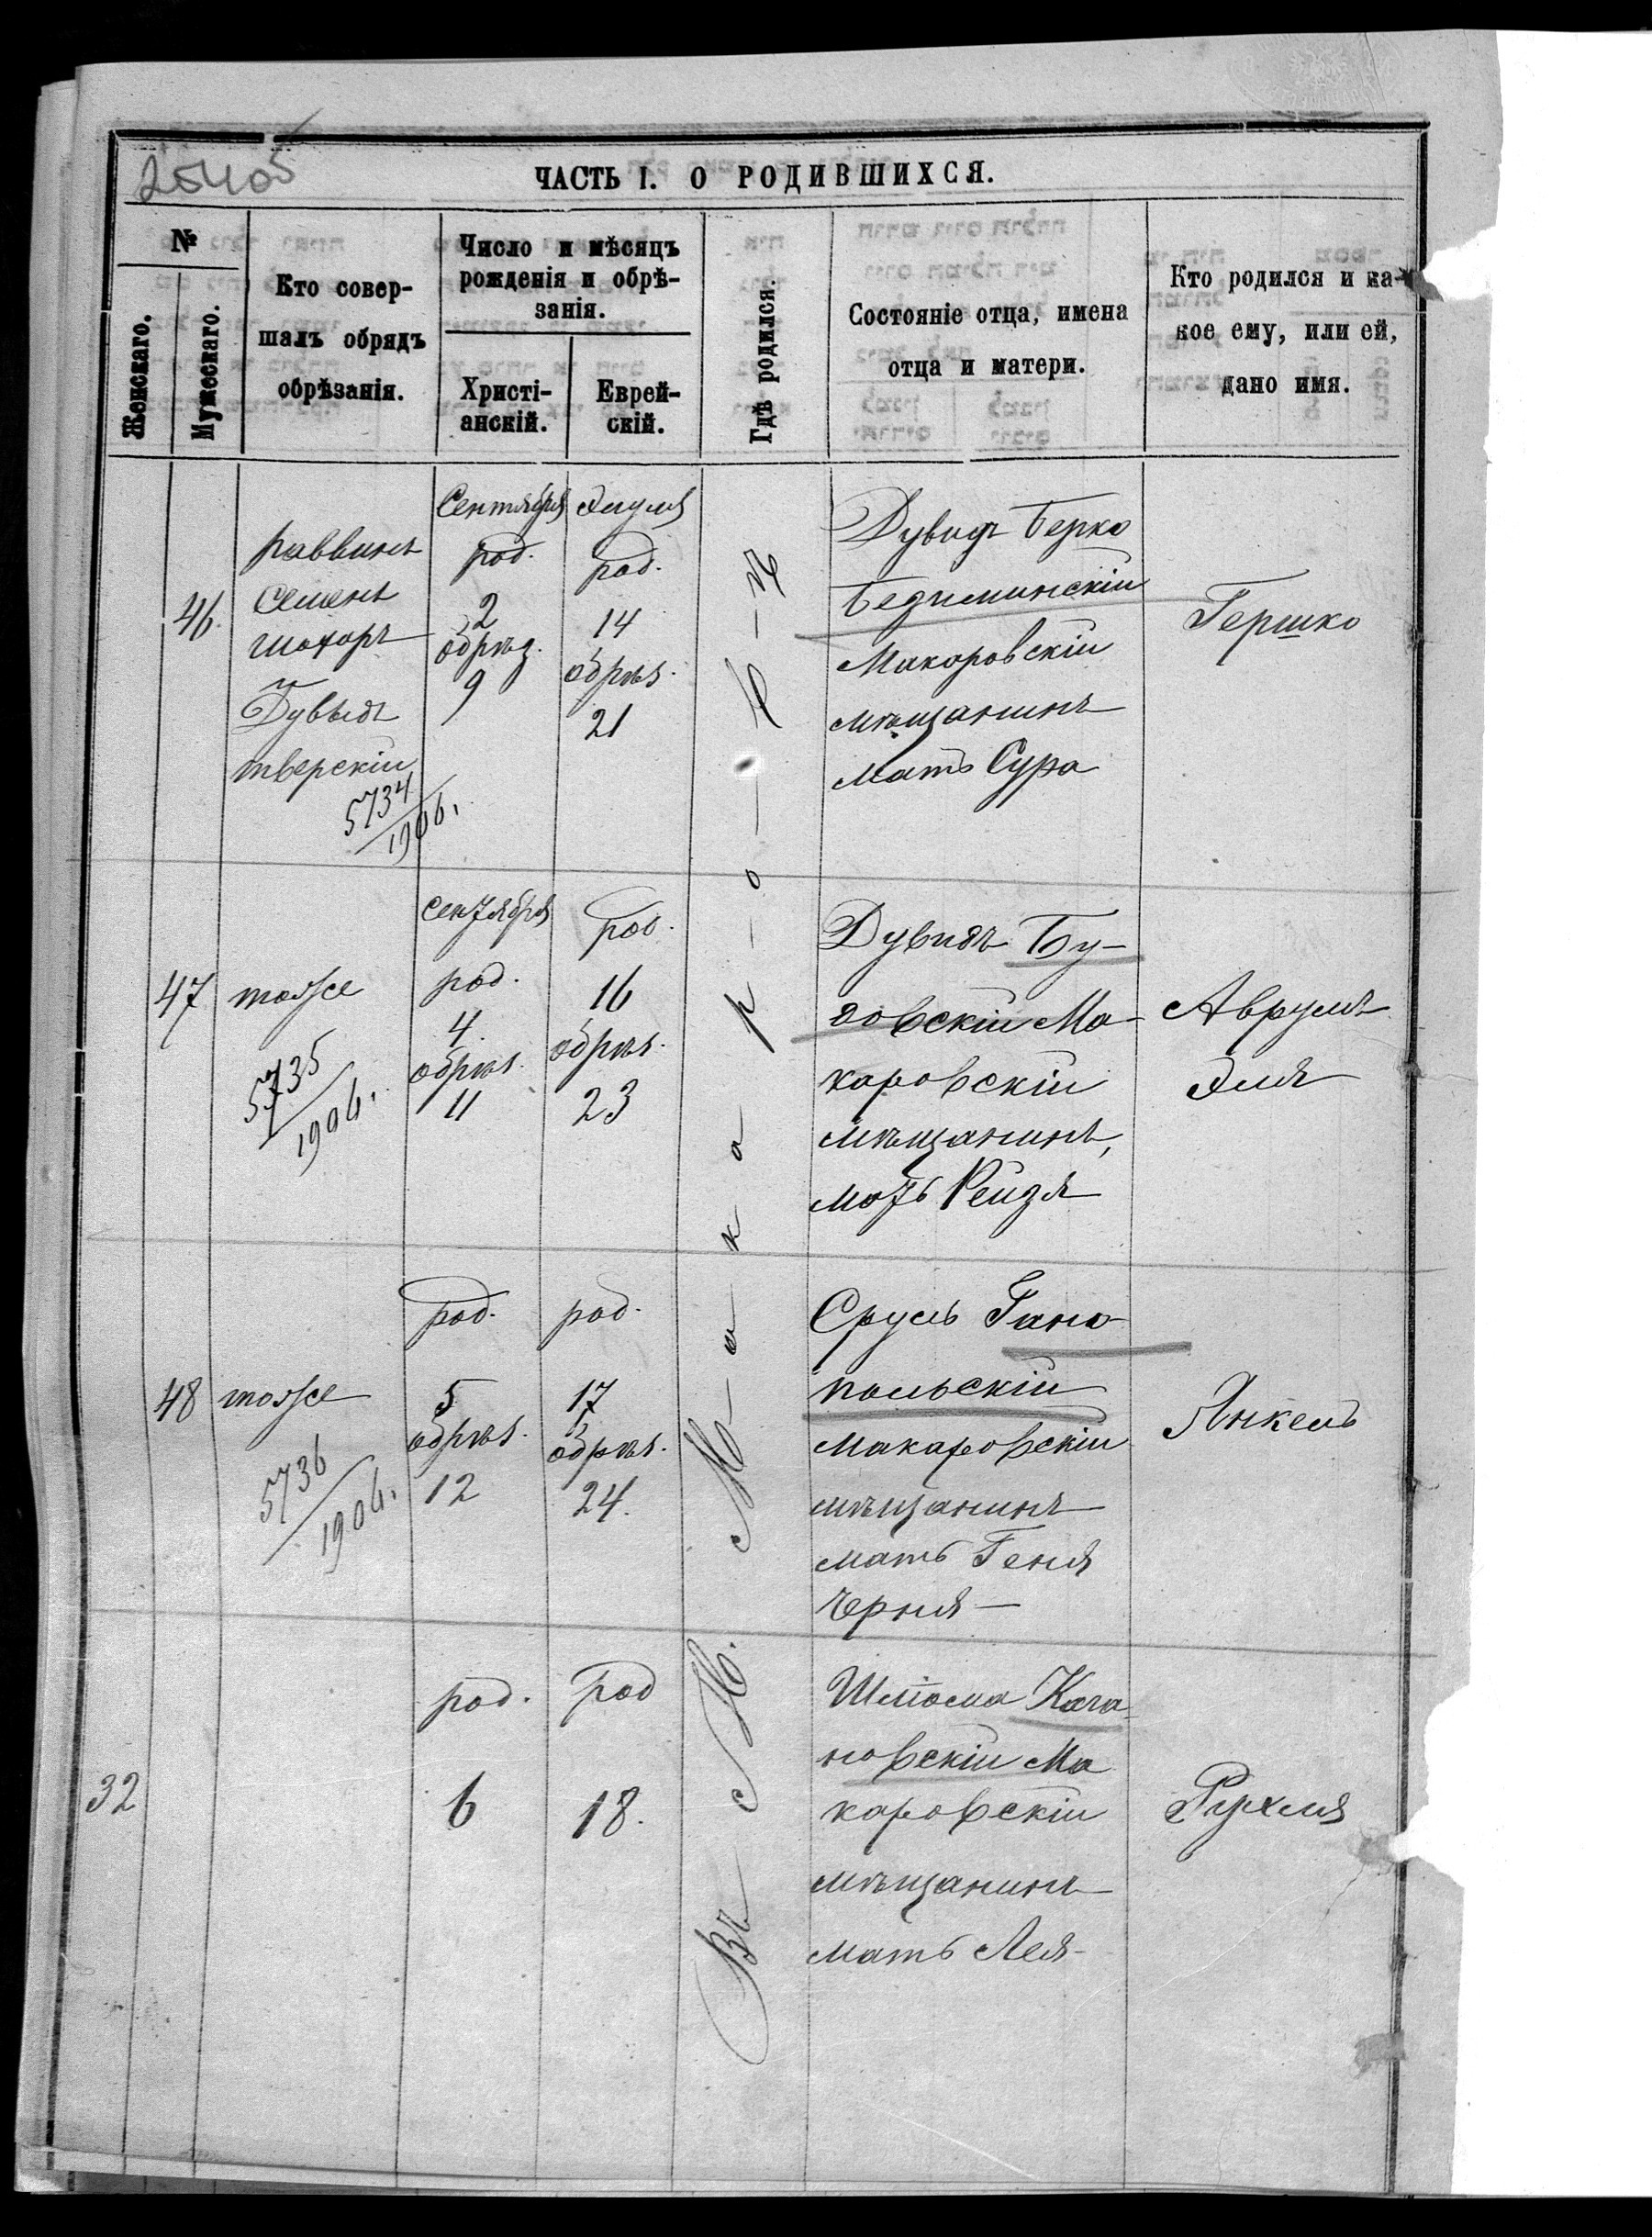 25405
ЧАСТЬ I. О РОДИВШИХСЯ.
№
Женскаго.
Мужескаго.
Кто совер-
шалъ обрядъ
обрѣзанія.
Число и мѣсяцъ
рожденія и обрѣ-
занія.
Христі-
анскій.
Еврей-
скій.
Гдѣ родился.
Состояніе отца, имена
отца и матери.
Кто родился и ка-
кое ему, или ей,
дано имя.
46.
раввинъ
Семенъ
Дувидъ
тверскій
5734
1906.
Сентября
род.
2
обрѣз.
9
Элуля
род.
14
обрѣз.
21
Дувидъ Берко
Макаровскій
мѣщанинъ
мать Сура
Гершко
47
тоже
5735
1906.
сентября
род.
4.
обрѣз.
11
род.
16
обрѣз.
23
Дувидъ Бу-
довскій Ма-
каровскій
мѣщанинъ,
мать Рейзя
Аврумъ
Эля
48
тоже
5736
1906.
род.
5
обрѣз.
12
род.
17
обрѣз.
24.
Сруль Гано-
польскій
Макаровскій
мѣщанинъ
мать Геня
Черня —
Янкель
32
род.
6
род
18.
Шлёма Кага-
новскій Ма
каровскій
мѣщанинъ
мать Лея-
Рухля
Въ М. М-а-к-а-р-о-